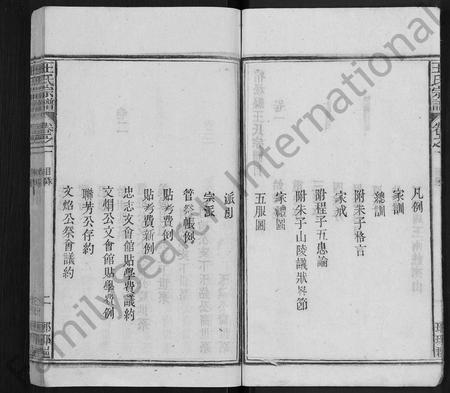 王氏宗譜
卷之一
凡例
家訓
總訓
附朱子格言
家戒
附程子五患論
附朱子山陵議狀畧節
家禮圖
五服圖
派引
宗派
管祭帳例
貼考費例
貼考費新例
忠志文會館貼學費議約
文炯公文會館貼學費例
聯芳公存約
文焰公祭會議約
王氏宗譜
卷之一
目錄
二
FamilySearch International